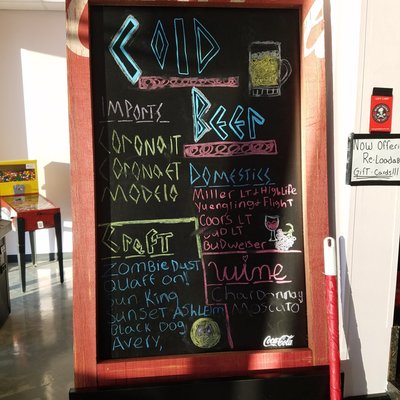 Cold
Beer
Imports
Corona LT
Corona ET
Modelo
Domestics
Miller LT + High Life
Yuengling + Flight
Coors LT
Bud LT
BudWeiser
Craft
Zombie Dust
Quaff on!
Sun King
Sunset Ashleim
Black Dog
Avery,
Wine
Chardonnay
Moscato
Coca-Cola
Now Offerin
Re-Loadab
Gift-Cards!!!